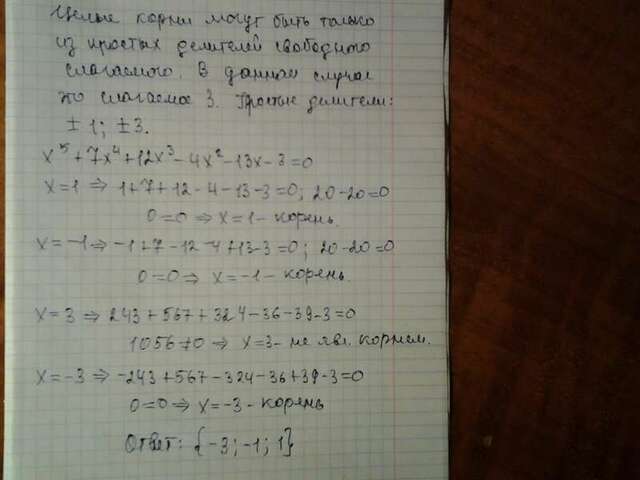 Целые корни могут быть только
из простых делителей свободного
слагаемого. В данном случае
это слагаемое 3. Простые делители:
± 1; ± 3.
x⁵ + 7x⁴ + 12x³ - 4x² - 13x - 3 = 0
x = 1 ⇒ 1 + 7 + 12 - 4 - 13 - 3 = 0; 20 - 20 = 0
0 = 0 ⇒ x = 1 - корень.
x = -1 ⇒ -1 + 7 - 12 - 4 + 13 - 3 = 0; 20 - 20 = 0
0 = 0 ⇒ x = -1 - корень.
x = 3 ⇒ 243 + 567 + 324 - 36 - 39 - 3 = 0
1056 ≠ 0 ⇒ x = 3 - не явл. корнем.
x = -3 ⇒ -243 + 567 - 324 - 36 + 39 - 3 = 0
0 = 0 ⇒ x = -3 - корень
Ответ: {-3; -1; 1}